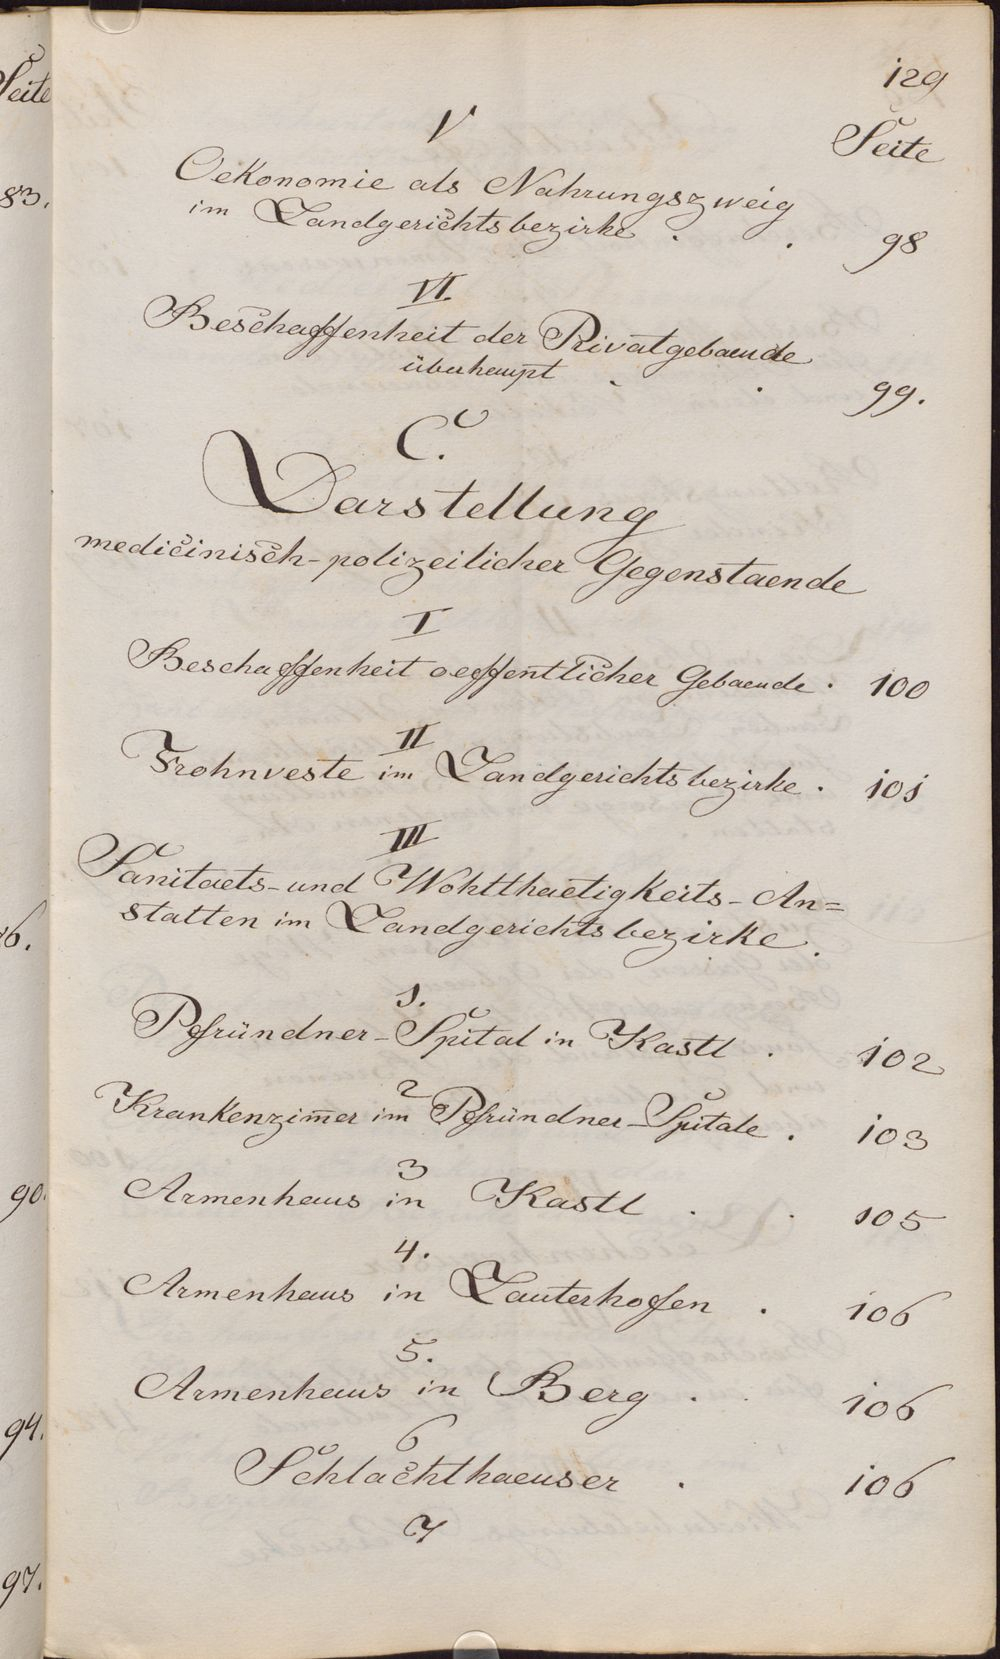 Seite
83.
86.
90.
94.
97.
129
Seite
V
Oekonomie als Nahrungszweig
im Landgerichtsbezirke . . 98
VI.
Beschaffenheit der Privatgebaeude
überhaupt . . 99.
C.
Darstellung
medicinisch-polizeilicher Gegenstaende
I
Beschaffenheit oeffentlicher Gebaeude . 100
II
Frohnveste im Landgerichtsbezirke . 101
III
Sanitaets- und Wohlthaetigkeits-An=
stalten im Landgerichtsbezirke.
1.
Pfründner-Spital in Kastl . 102
2
Krankenzim̅er im Pfründner-Spitale . 103
3
Armenhaus in Kastl . . 105
4.
Armenhaus in Lauterhofen . 106
5.
Armenhaus in Berg . . 106
6
Schlachthaeuser . 106
7